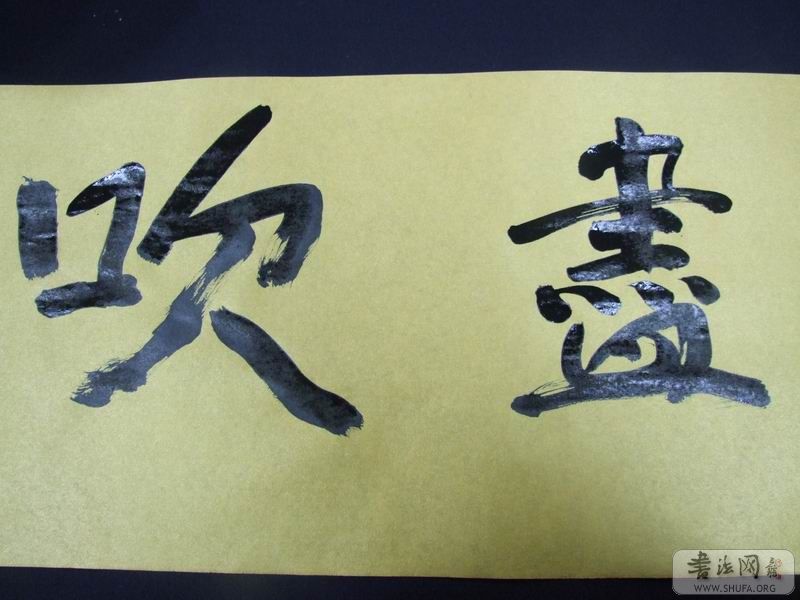 吹盡
書法网
WWW.SHUFA.ORG